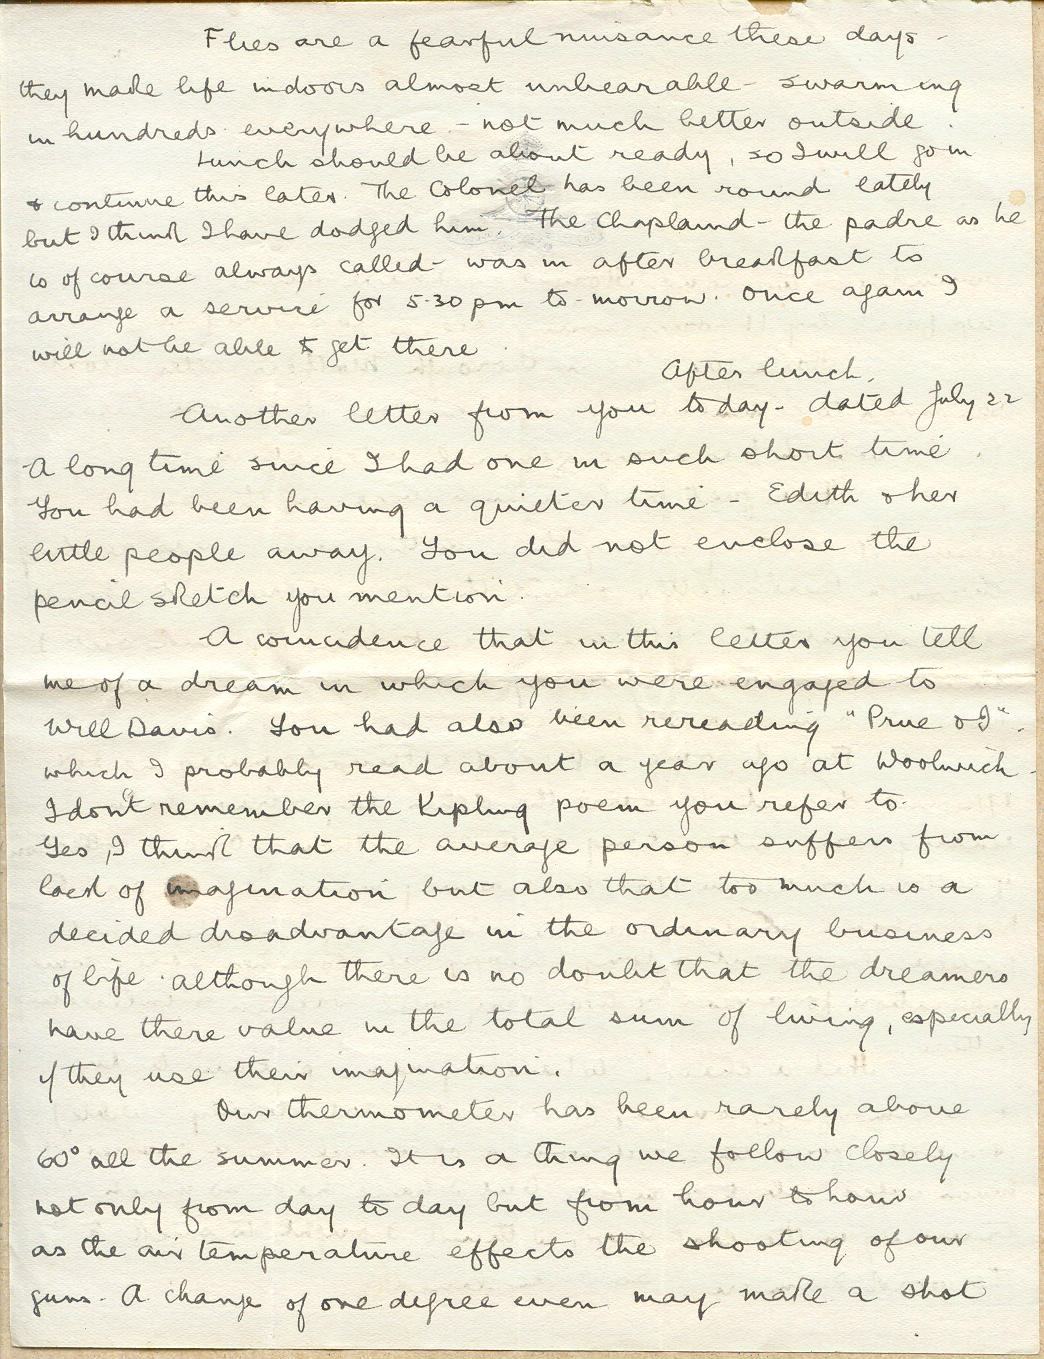 Flies are a fearful nuisance these days -
they make life indoors almost unbearable swarming
in hundreds everywhere - not much better outside.
Lunch should be about ready, so I will go in
& continue this later. The Colonel has been round lately
but I think I have dodged him. The Chaplaind - the padre as he
is of course always called - was in after breakfast to
arrange a service for 5.30 pm to-morrow. Once again I
will not be able to get there.
After lunch.
Another letter from you today - dated July 22
A long time since I had one in such short time.
You had been having a quieter time - Edith & her
little people away. You did not enclose the
pencil sketch you mention.
A coincidence that in this letter you tell
me of a dream in which you were engaged to
Will Davis. You had also been rereading "Prue & I".
which I probably read about a year ago at Woolwich -
I dont remember the Kipling poem you refer to.
Yes, I think that the average person suffers from
lack of imagination but also that too much is a
decided disadvantage in the ordinary business
of life. although there is no doubt that the dreamers
have there value in the total sum of living, especially
if they use their imagination.
Our thermometer has been rarely above
60° all the summer. It is a thing we follow closely
not only from day to day but from hour to hour
as the air temperature effects the shooting of our
guns. A change of one degree even may make a shot